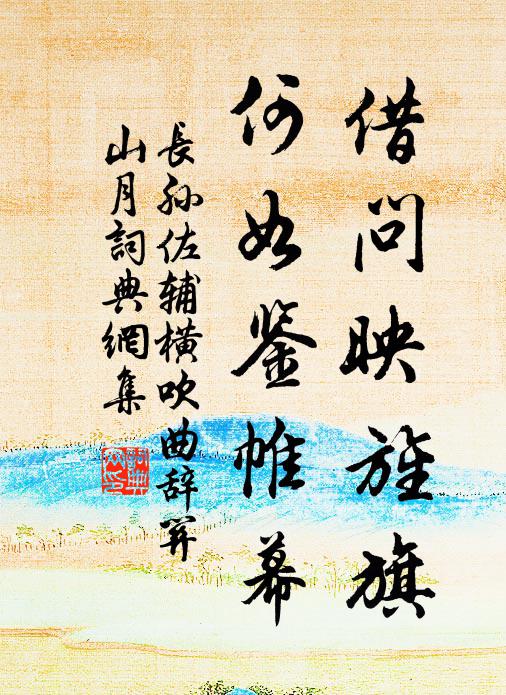 借问映旌旗
何如鉴帷幕
長孙佐辅橫吹曲辞關
山月詞典網集